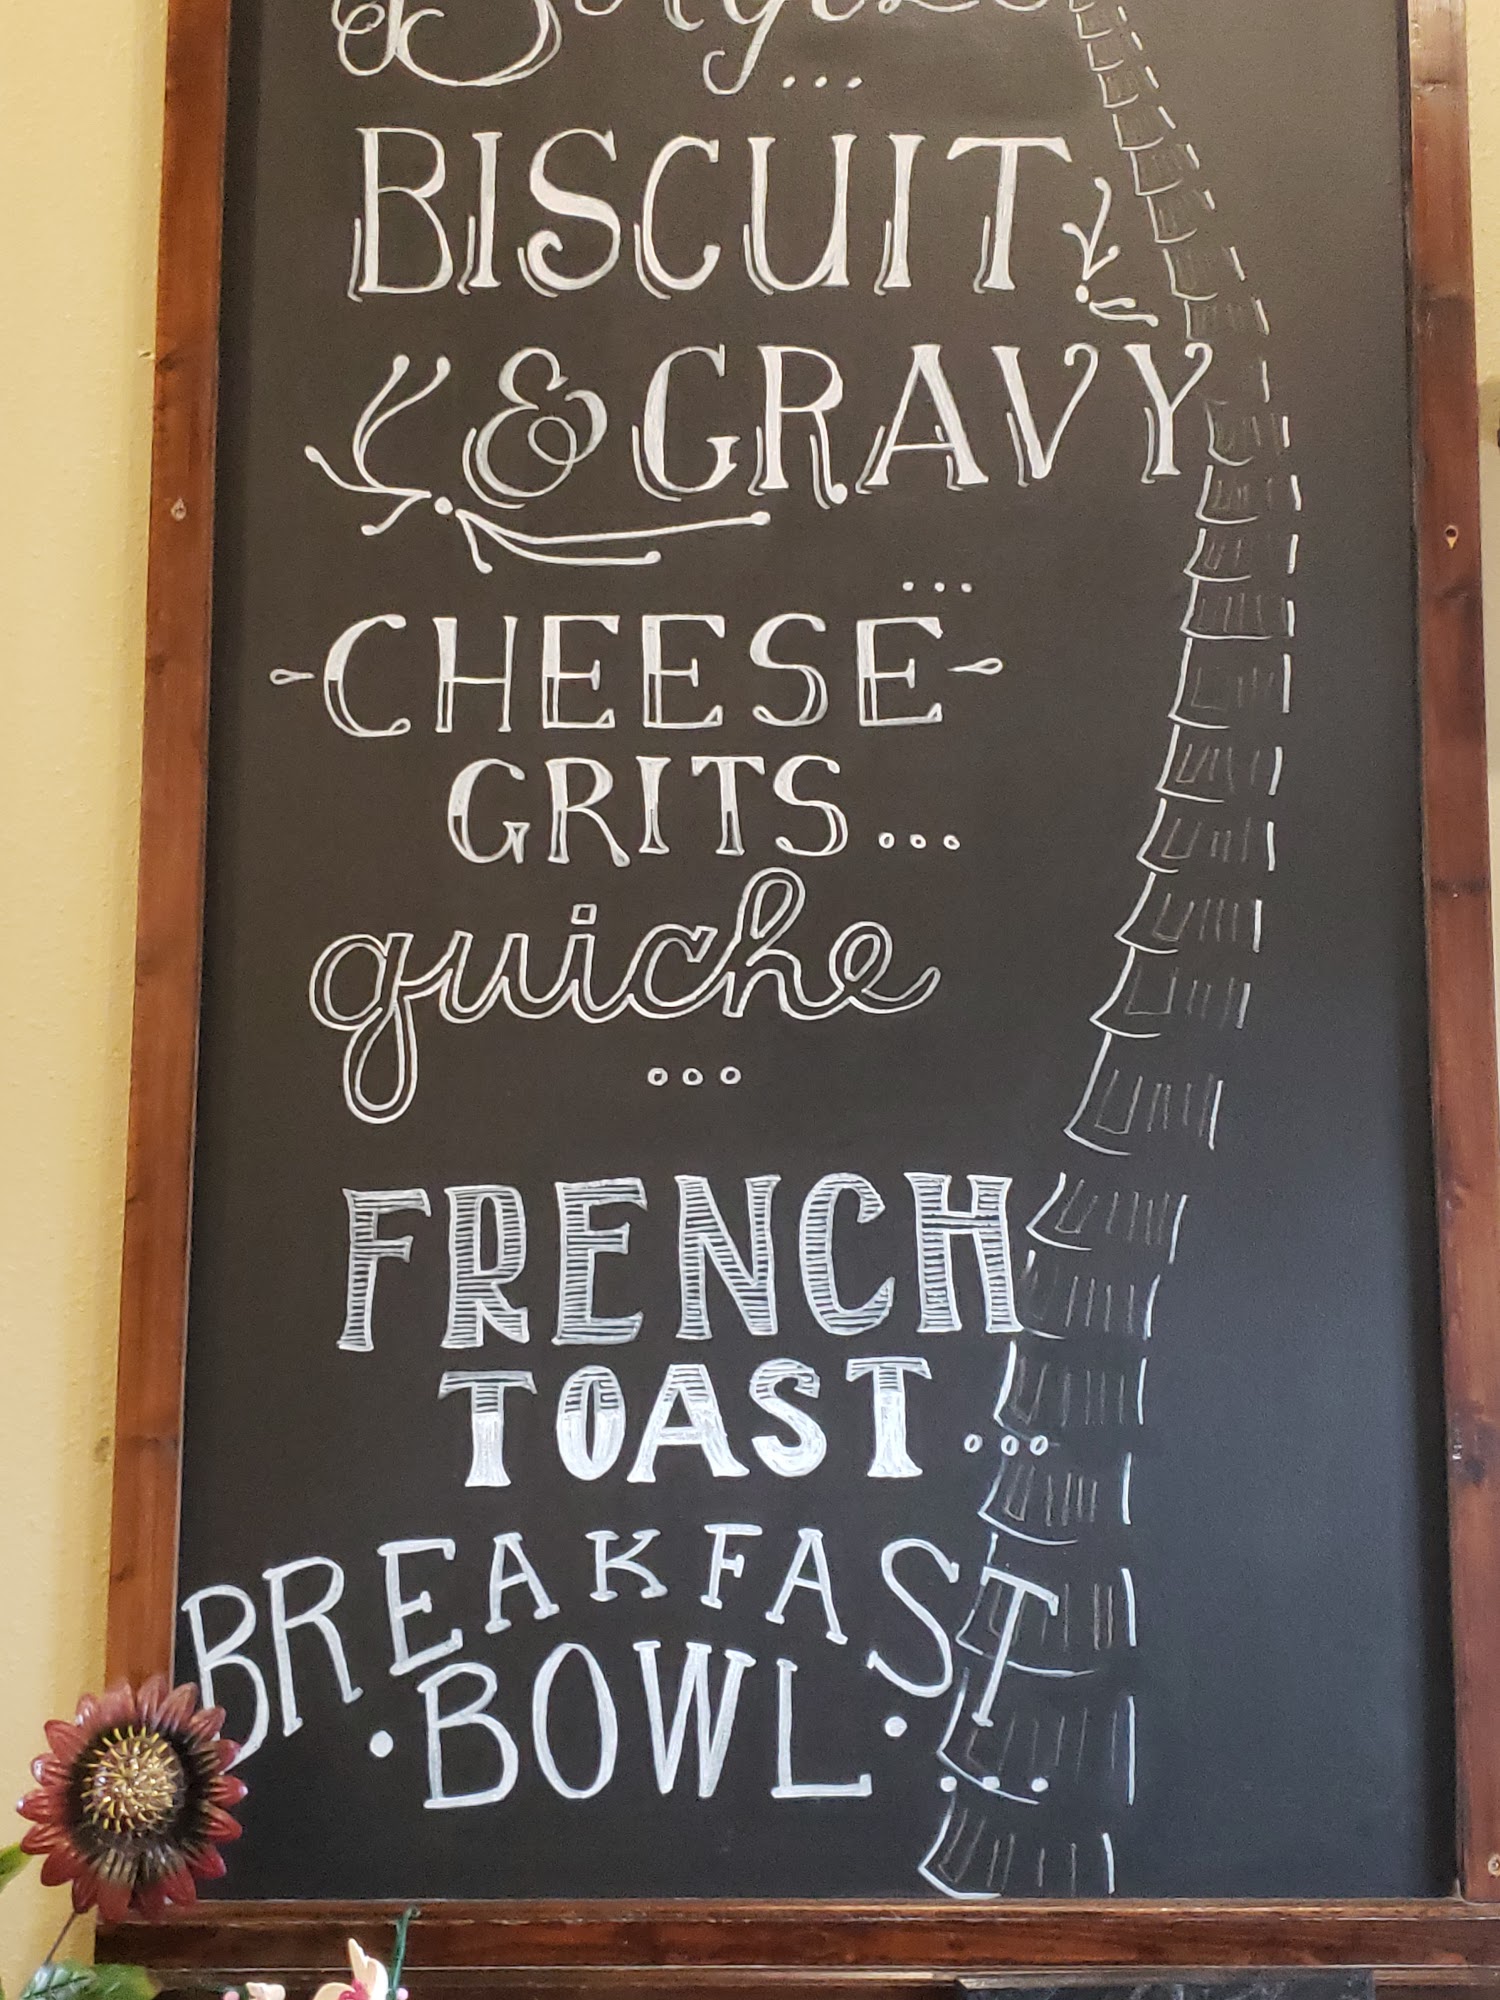 ...
BISCUIT
& GRAVY
...
CHEESE
GRITS...
quiche
...
FRENCH
TOAST...
BREAKFAST
BOWL
...